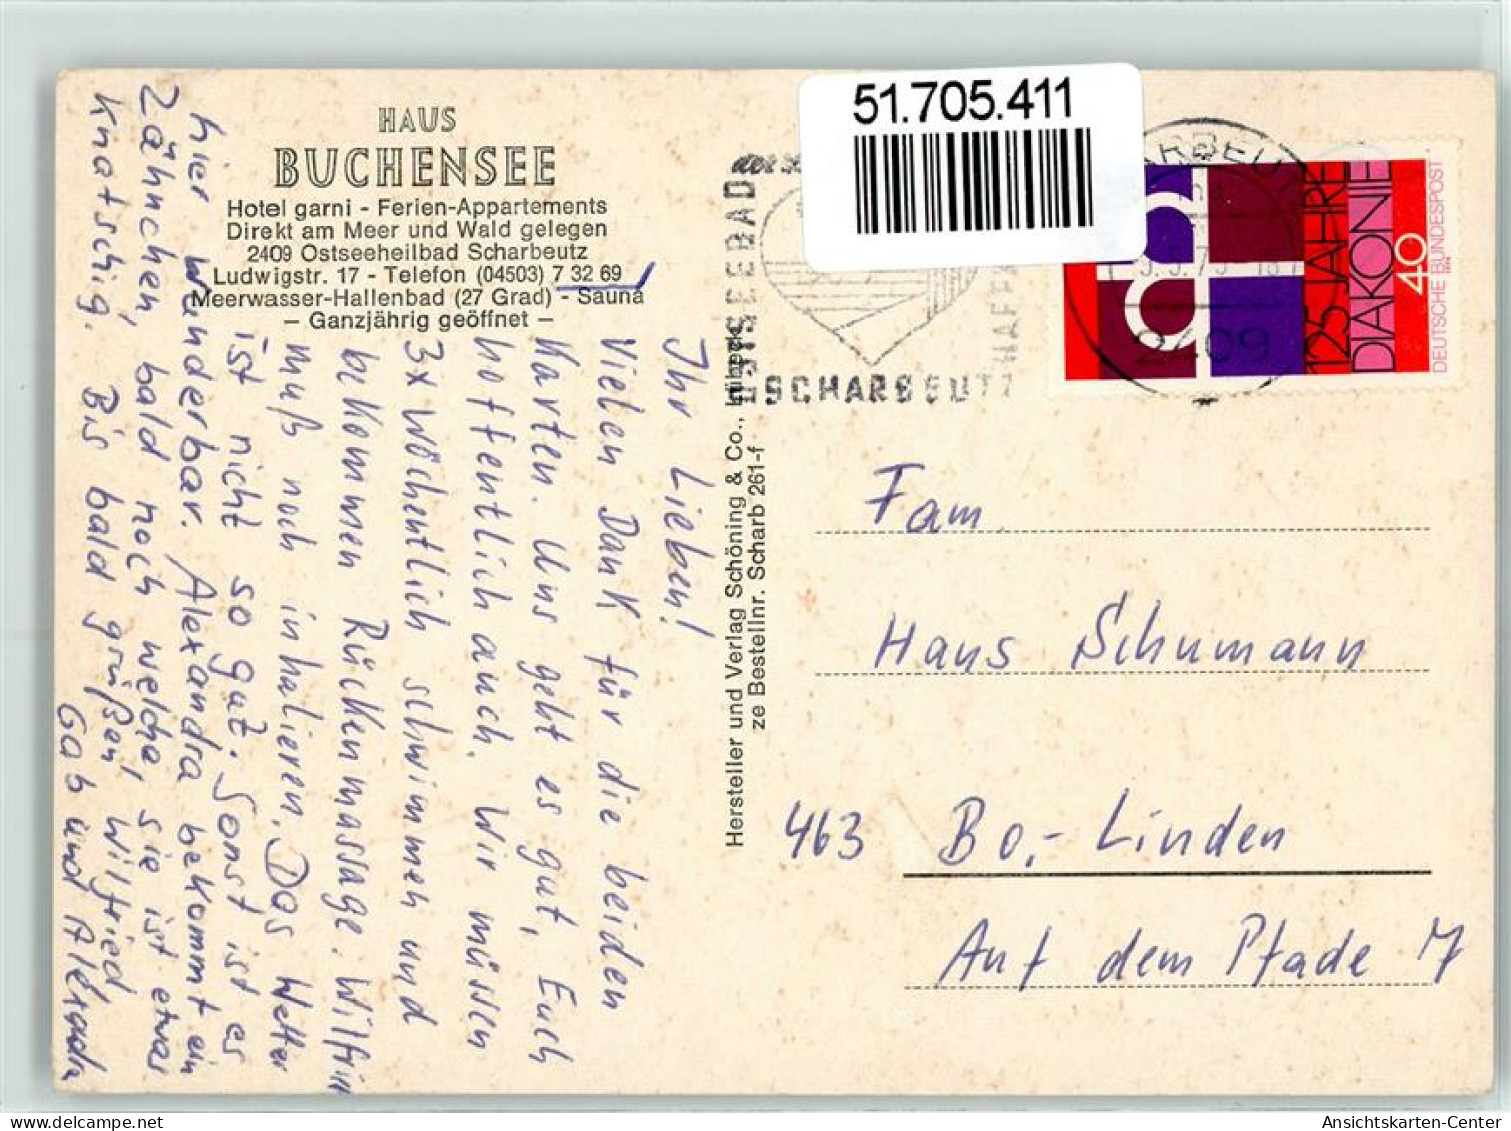 HAUS
BUCHENSEE
Hotel garni - Ferien-Appartements
Direkt am Meer und Wald gelegen
2409 Ostseeheilbad Scharbeutz
Ludwigstr. 17 - Telefon (04503) 7 32 69
Meerwasser-Hallenbad (27 Grad) - Sauna
– Ganzjährig geöffnet –
Ihr Lieben!
Vielen Dank für die beiden
Karten. Uns geht es gut, Euch
hoffentlich auch. Wir müssen
3x wöchentlich schwimmen und
bekommen Rückenmassage. Wilfried
muß noch inhalieren. Das Wetter
ist nicht so gut. Sonst ist es
hier wunderbar. Alexandra bekommt ein
Zähnchen, bald noch welche, sie ist etwas
Knatschig. Bis bald grüßen, Wilfried
Gab und Alexandra
Hersteller und Verlag Schöning & Co., Lübeck
ze Bestellnr. Scharb 261-f
51.705.411
OSTSEEBAD
SCHARBEUTZ
HAFF
RBEU
2409
125 JAHRE
DIAKONIE
40
DEUTSCHE BUNDESPOST
Fam.
Hans Schumann
463 Bo.-Linden
Auf dem Pfade 17
Ansichtskarten-Center